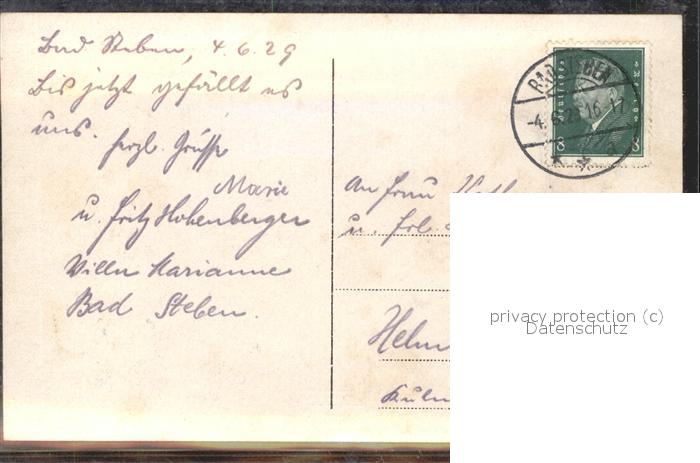 Bad Steben, 4.6.29
Bis jetzt gefällt es
uns. herzl. Grüsse
Marie
u. Fritz Hohenberger
Villa Marianne
Bad Steben.
An Frau
u. Frl.
Helm
Kulm
BAD STEBEN
-4.6.29.16-17
8 8
privacy protection (c)
Datenschutz